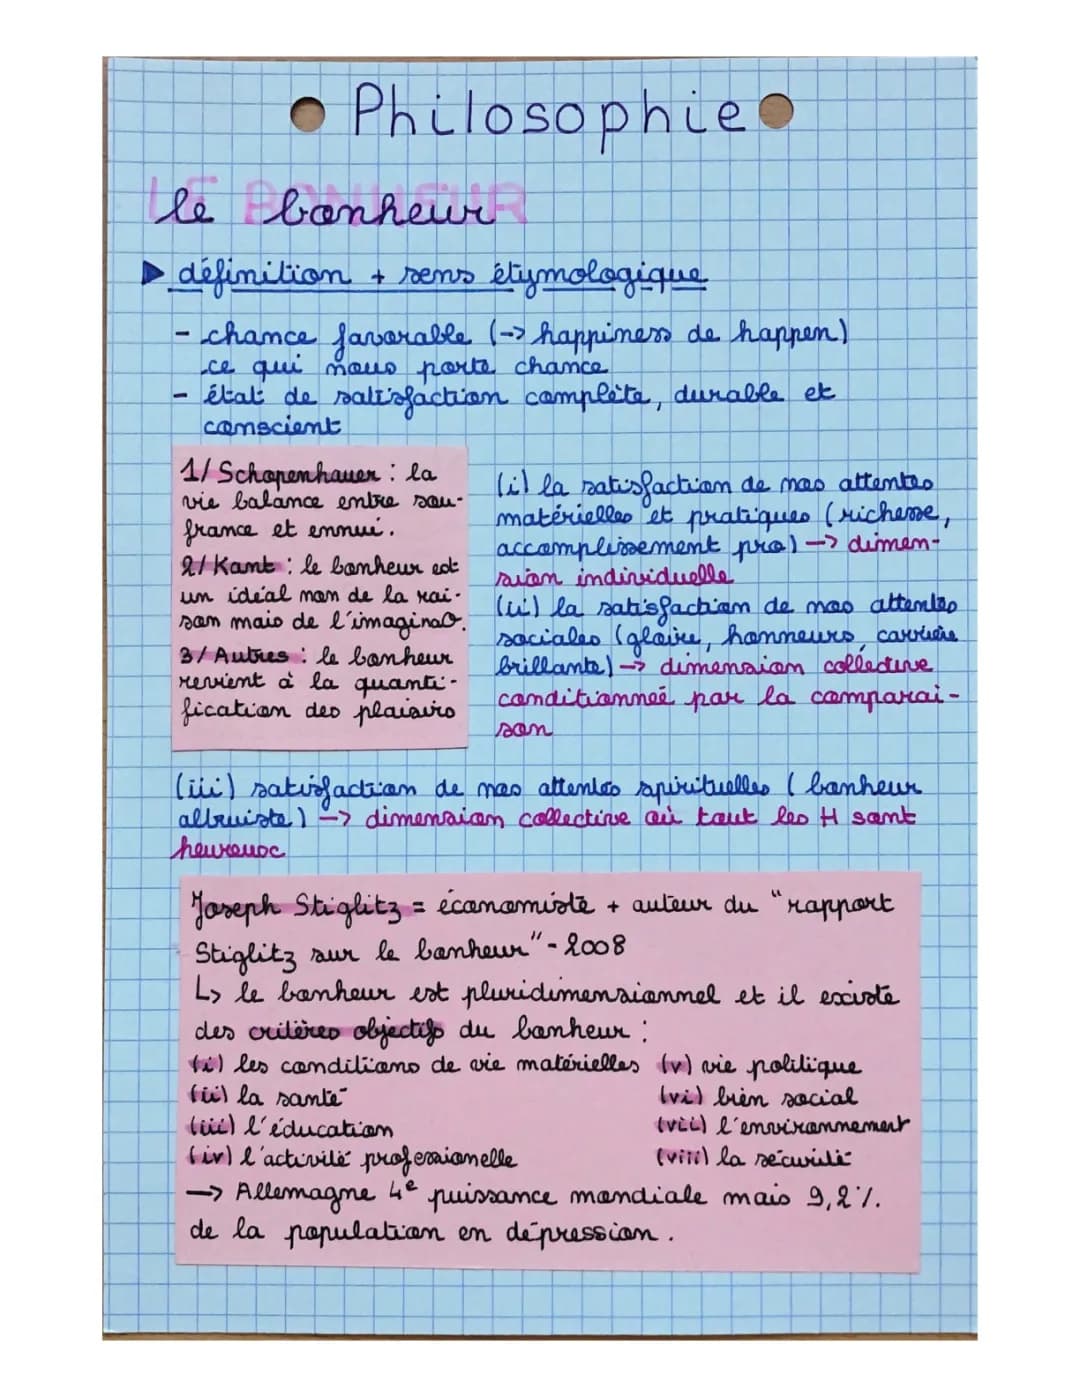 Philosophie
LE BONHEUR
le bonheur
définition + sens étymologique
- chance favorable (-> happiness de happen)
ce qui nous porte chance
- état de satisfaction complète, durable et
conscient
1/ Schopenhauer : la
vie balance entre sou-
france et ennui.
2/ Kant : le bonheur est
un idéal non de la rai-
son mais de l'imagina°.
3/ Autres : le bonheur
revient à la quanti-
fication des plaisirs
(i) la satisfaction de nos attentes
matérielles et pratiques (richesse,
accomplissement pro) -> dimen-
sion individuelle
(ii) la satisfaction de nos attentes
sociales (gloire, honneurs, carrière
brillante) -> dimension collective
conditionneé par la comparai-
son
(iii) satisfaction de nos attentes spirituelles (bonheur
altruiste) -> dimension collective où tout les H sont
heureux
Joseph Stiglitz = économiste + auteur du "rapport
Stiglitz sur le bonheur" - 2008
↳ le bonheur est pluridimensionnel et il existe
des critères objectifs du bonheur :
(i) les conditions de vie matérielles (v) vie politique
(ii) la santé (vi) bien social
(iii) l'éducation (vii) l'environnement
(iv) l'activité professionelle (viii) la sécurité
-> Allemagne 4e puissance mondiale mais 9,2%
de la population en dépression.